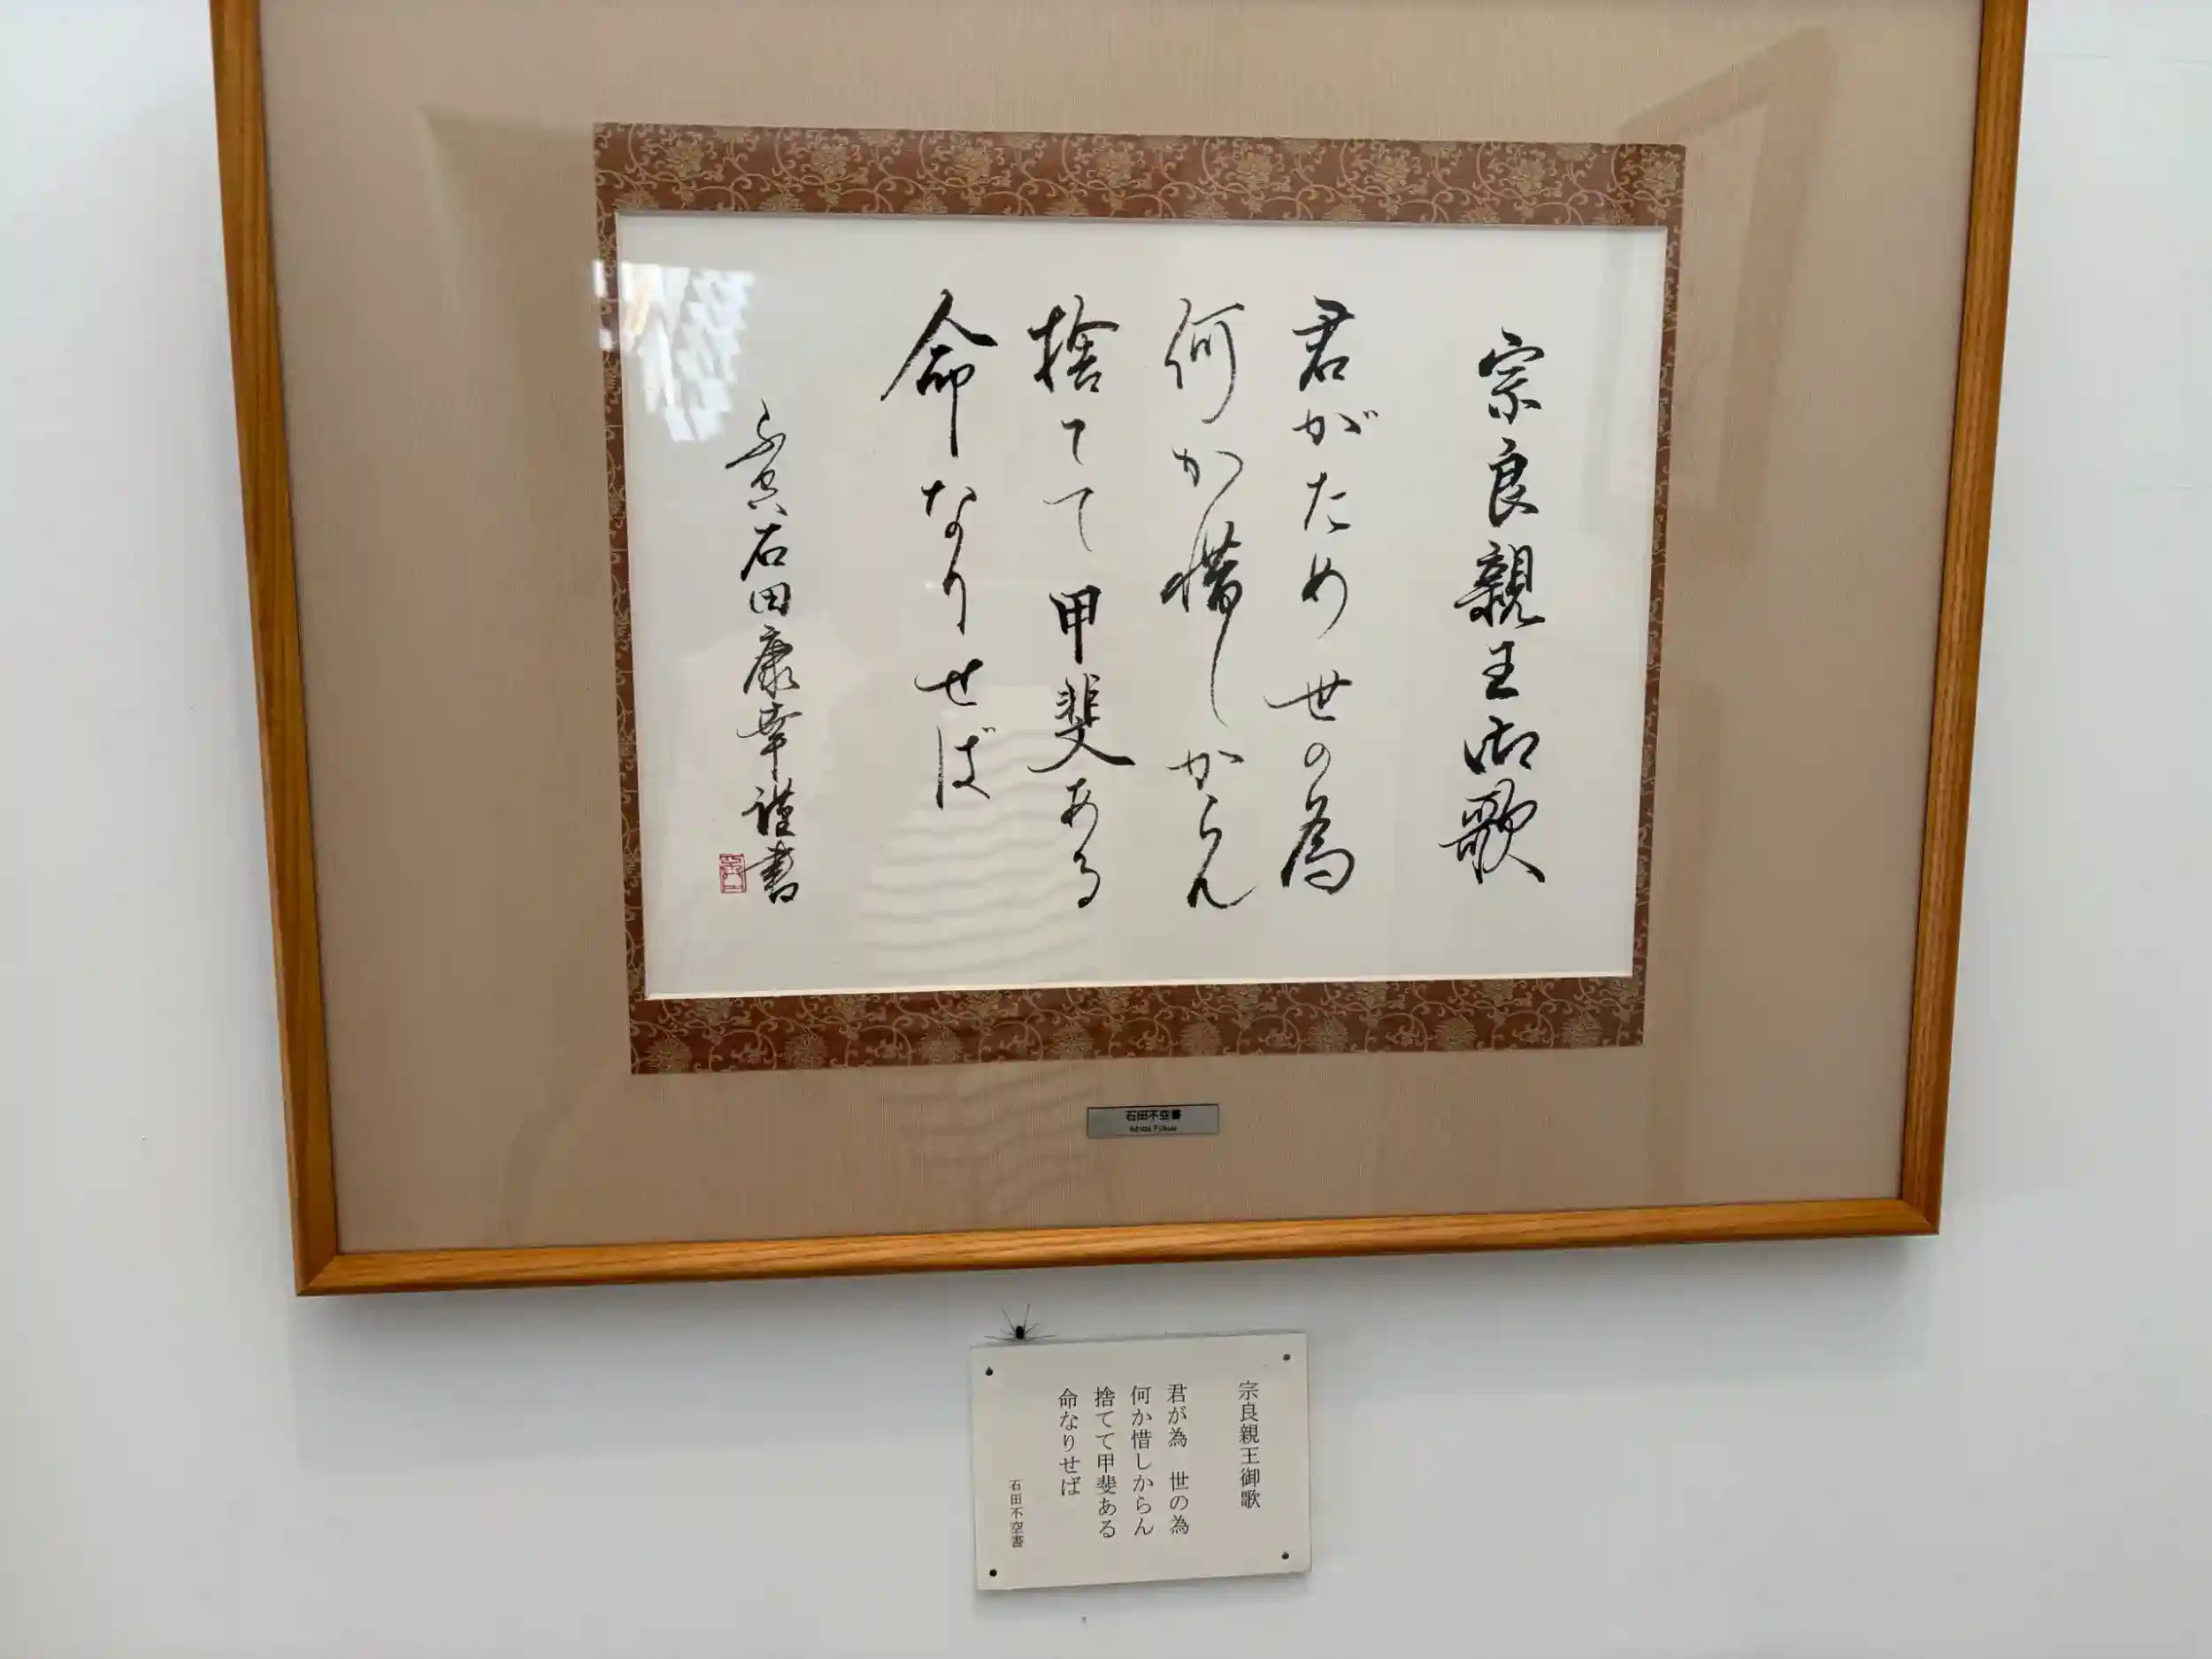 宗良親王御歌
君がため世の為
何か惜しからん
捨てて甲斐ある
命なりせば
不空石田康幸謹書
石田不空書
宗良親王御歌
君が為　世の為
何か惜しからん
捨てて甲斐ある
命なりせば
石田不空書